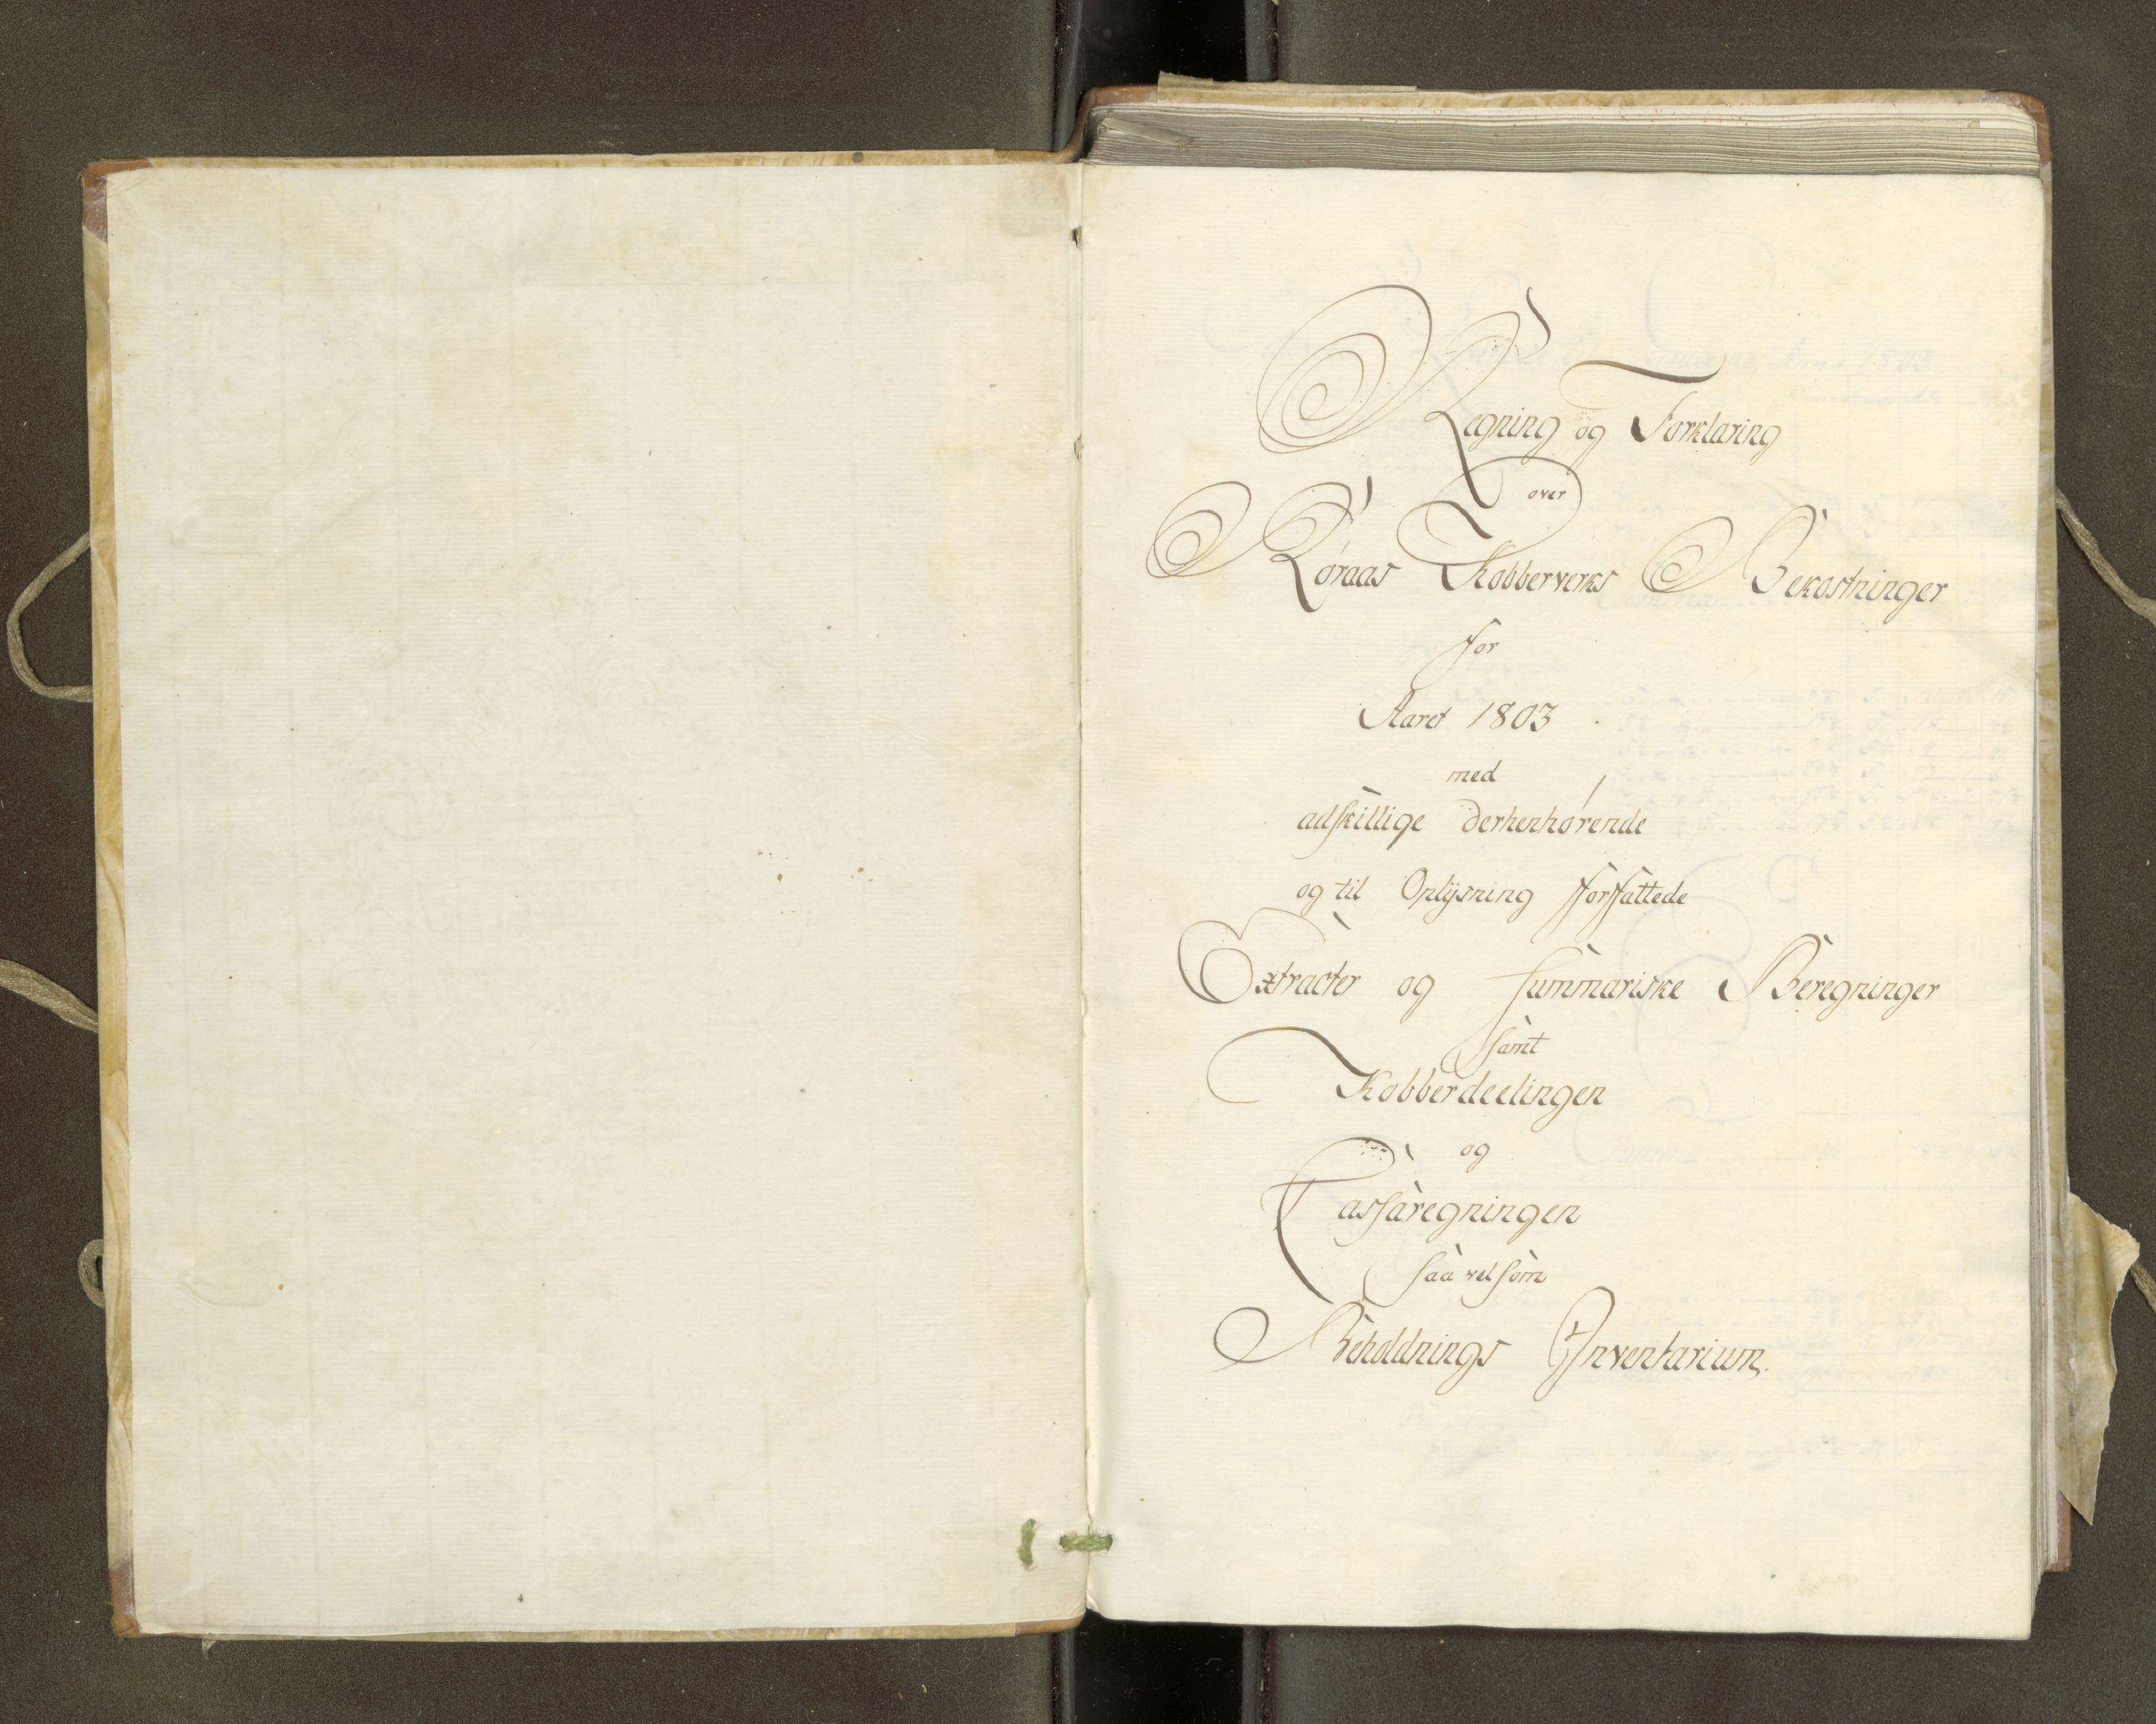 Regning og Forklaring
over
Røraas Kobberverks Bekostninger
for
Aaret 1803
med
adskillige derhenhørende
og til Oplysning forfattede
Extracter og summariske Beregninger
samt
Kobberdeelingen
og
Cassaregningen
saavelsom
Beholdnings Inventarium.